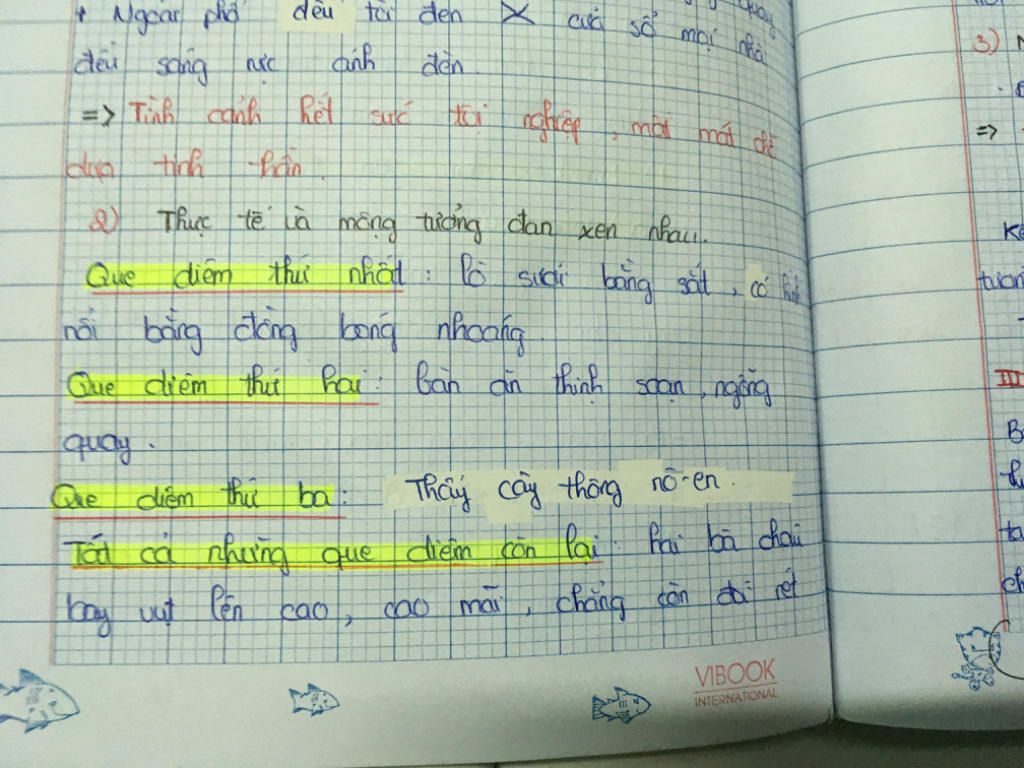 + Ngoài phố đều tối đen X cửa sổ mọi nhà
đều sáng rực ánh đèn
=> Tình cảnh hết sức tội nghiệp, mất mát chỗ
dựa tinh thần.
2) Thực tế và mộng tưởng đan xen nhau.
Que diêm thứ nhất: lò sưởi bằng sắt, có hình
nổi bằng đồng bóng nhoáng.
Que diêm thứ hai: bàn ăn thịnh soạn, ngỗng
quay.
Que diêm thứ ba: Thấy cây thông nô-en.
Tất cả những que diêm còn lại: hai bà cháu
bay vụt lên cao, cao mãi, chẳng còn đói rét
VIBOOK
INTERNATIONAL
3)
=>
III